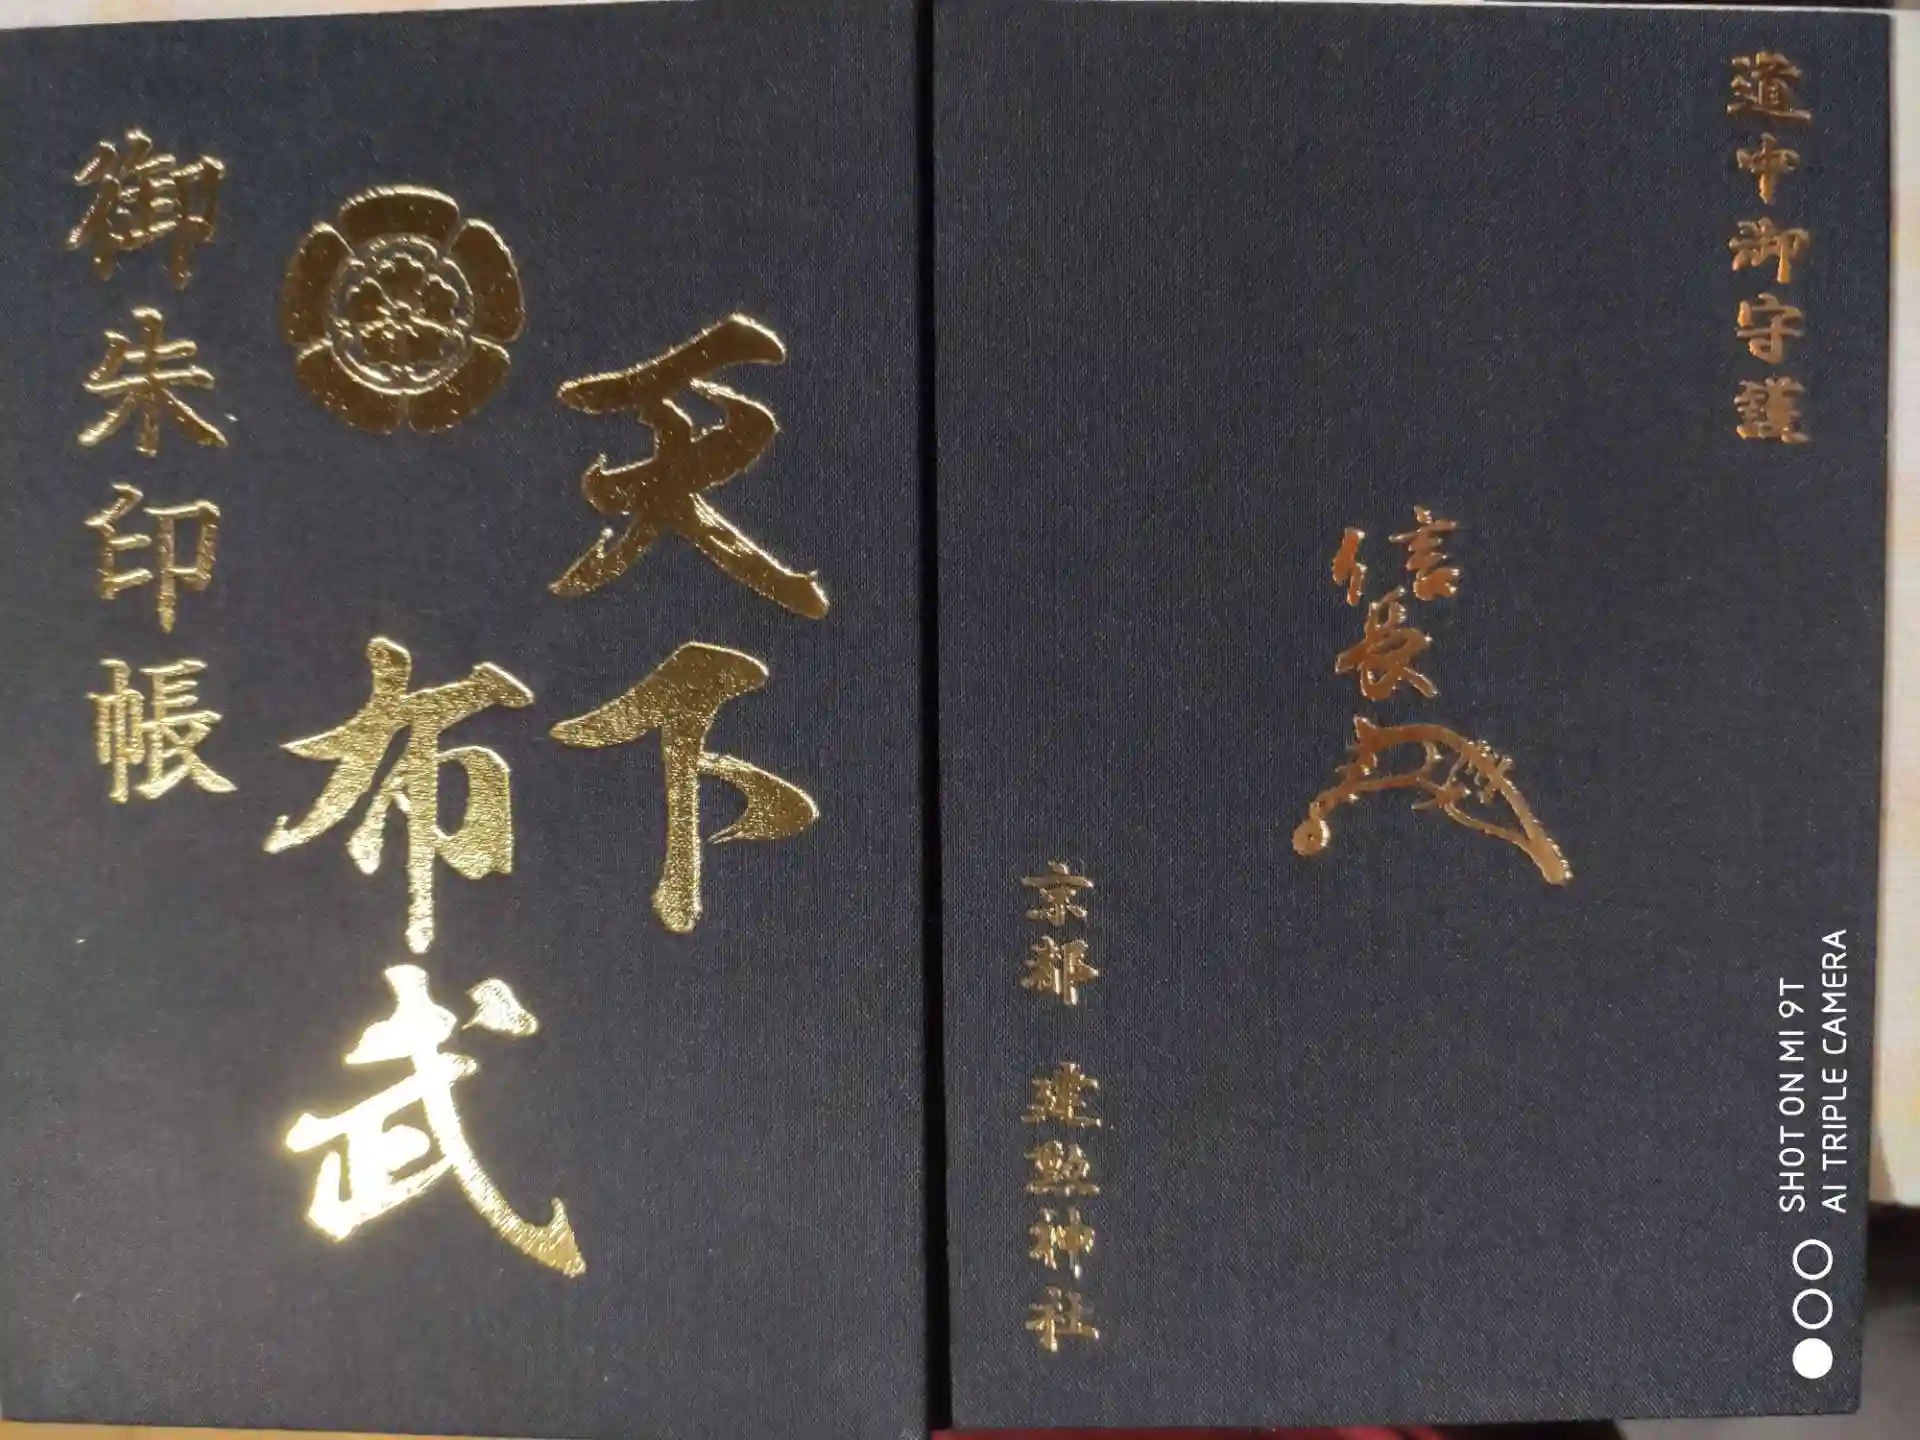 道中御守護
信長
京都 建勲神社
天下
布武
御朱印帳
SHOT ON MI 9T
AI TRIPLE CAMERA